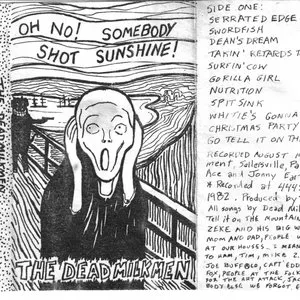 OH NO! SOMEBODY
SHOT SUNSHINE!
THE DEAD MILKMEN
SIDE ONE:
SERRATED EDGE
SWORDFISH
DEAN'S DREAM
TAKIN' RETARDS T
SURFIN' COW
GORILLA GIRL
NUTRITION
SPIT SINK
WHITIE'S GONNA
CHRISTMAS PARTY
GO TELL IT ON TH
RECORDED AUGUST
ment, Sellersville, Pa
Ace and Jonny Ear
* Recorded at 444
1982. Produced by
All songs by Dead Mil
Tell it on the Mountain
ZEKE AND HIS BIG W
MOM AND DAD, PEOPLE
AT OUR HOUSES... I MEAN
TO HAM, TIM, MIKE
JOE BUFFBLO, CAPT' EDD
FOX, PEOPLE AT THE FOLK
FOR THE ART ATTACK,
BODY ELSE WE FORGOT